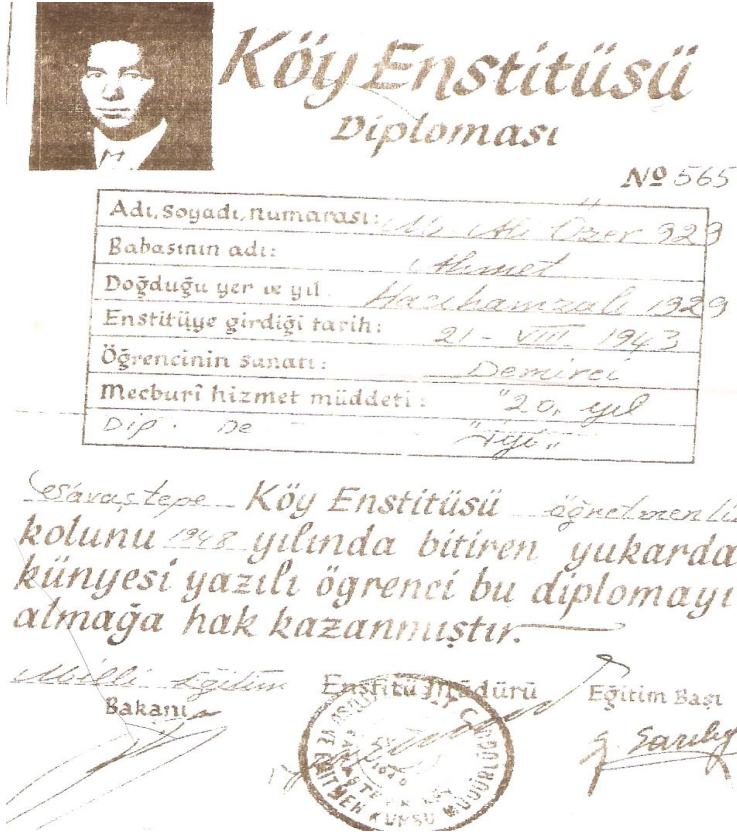 Köy Enstitüsü
Diploması
Nº 565
Adı, Soyadı, numarası: M. Ali Özer 929
Babasının adı: Ahmet
Doğduğu yer ve yıl: Hacıhamzalı 1929
Enstitüye girdiği tarih: 21 - VIII. 1943
Öğrencinin sanatı: Demirci
Mecburî hizmet müddeti: "20" yıl
Dip. De "İyi"
Savaştepe Köy Enstitüsü öğretmenlik
kolunu 1948 yılında bitiren yukarda
künyesi yazılı ögrenci bu diplomayı
almağa hak kazanmıştır.
Milli Eğitim Enstitü Müdürü Eğitim Başı
Bakanı